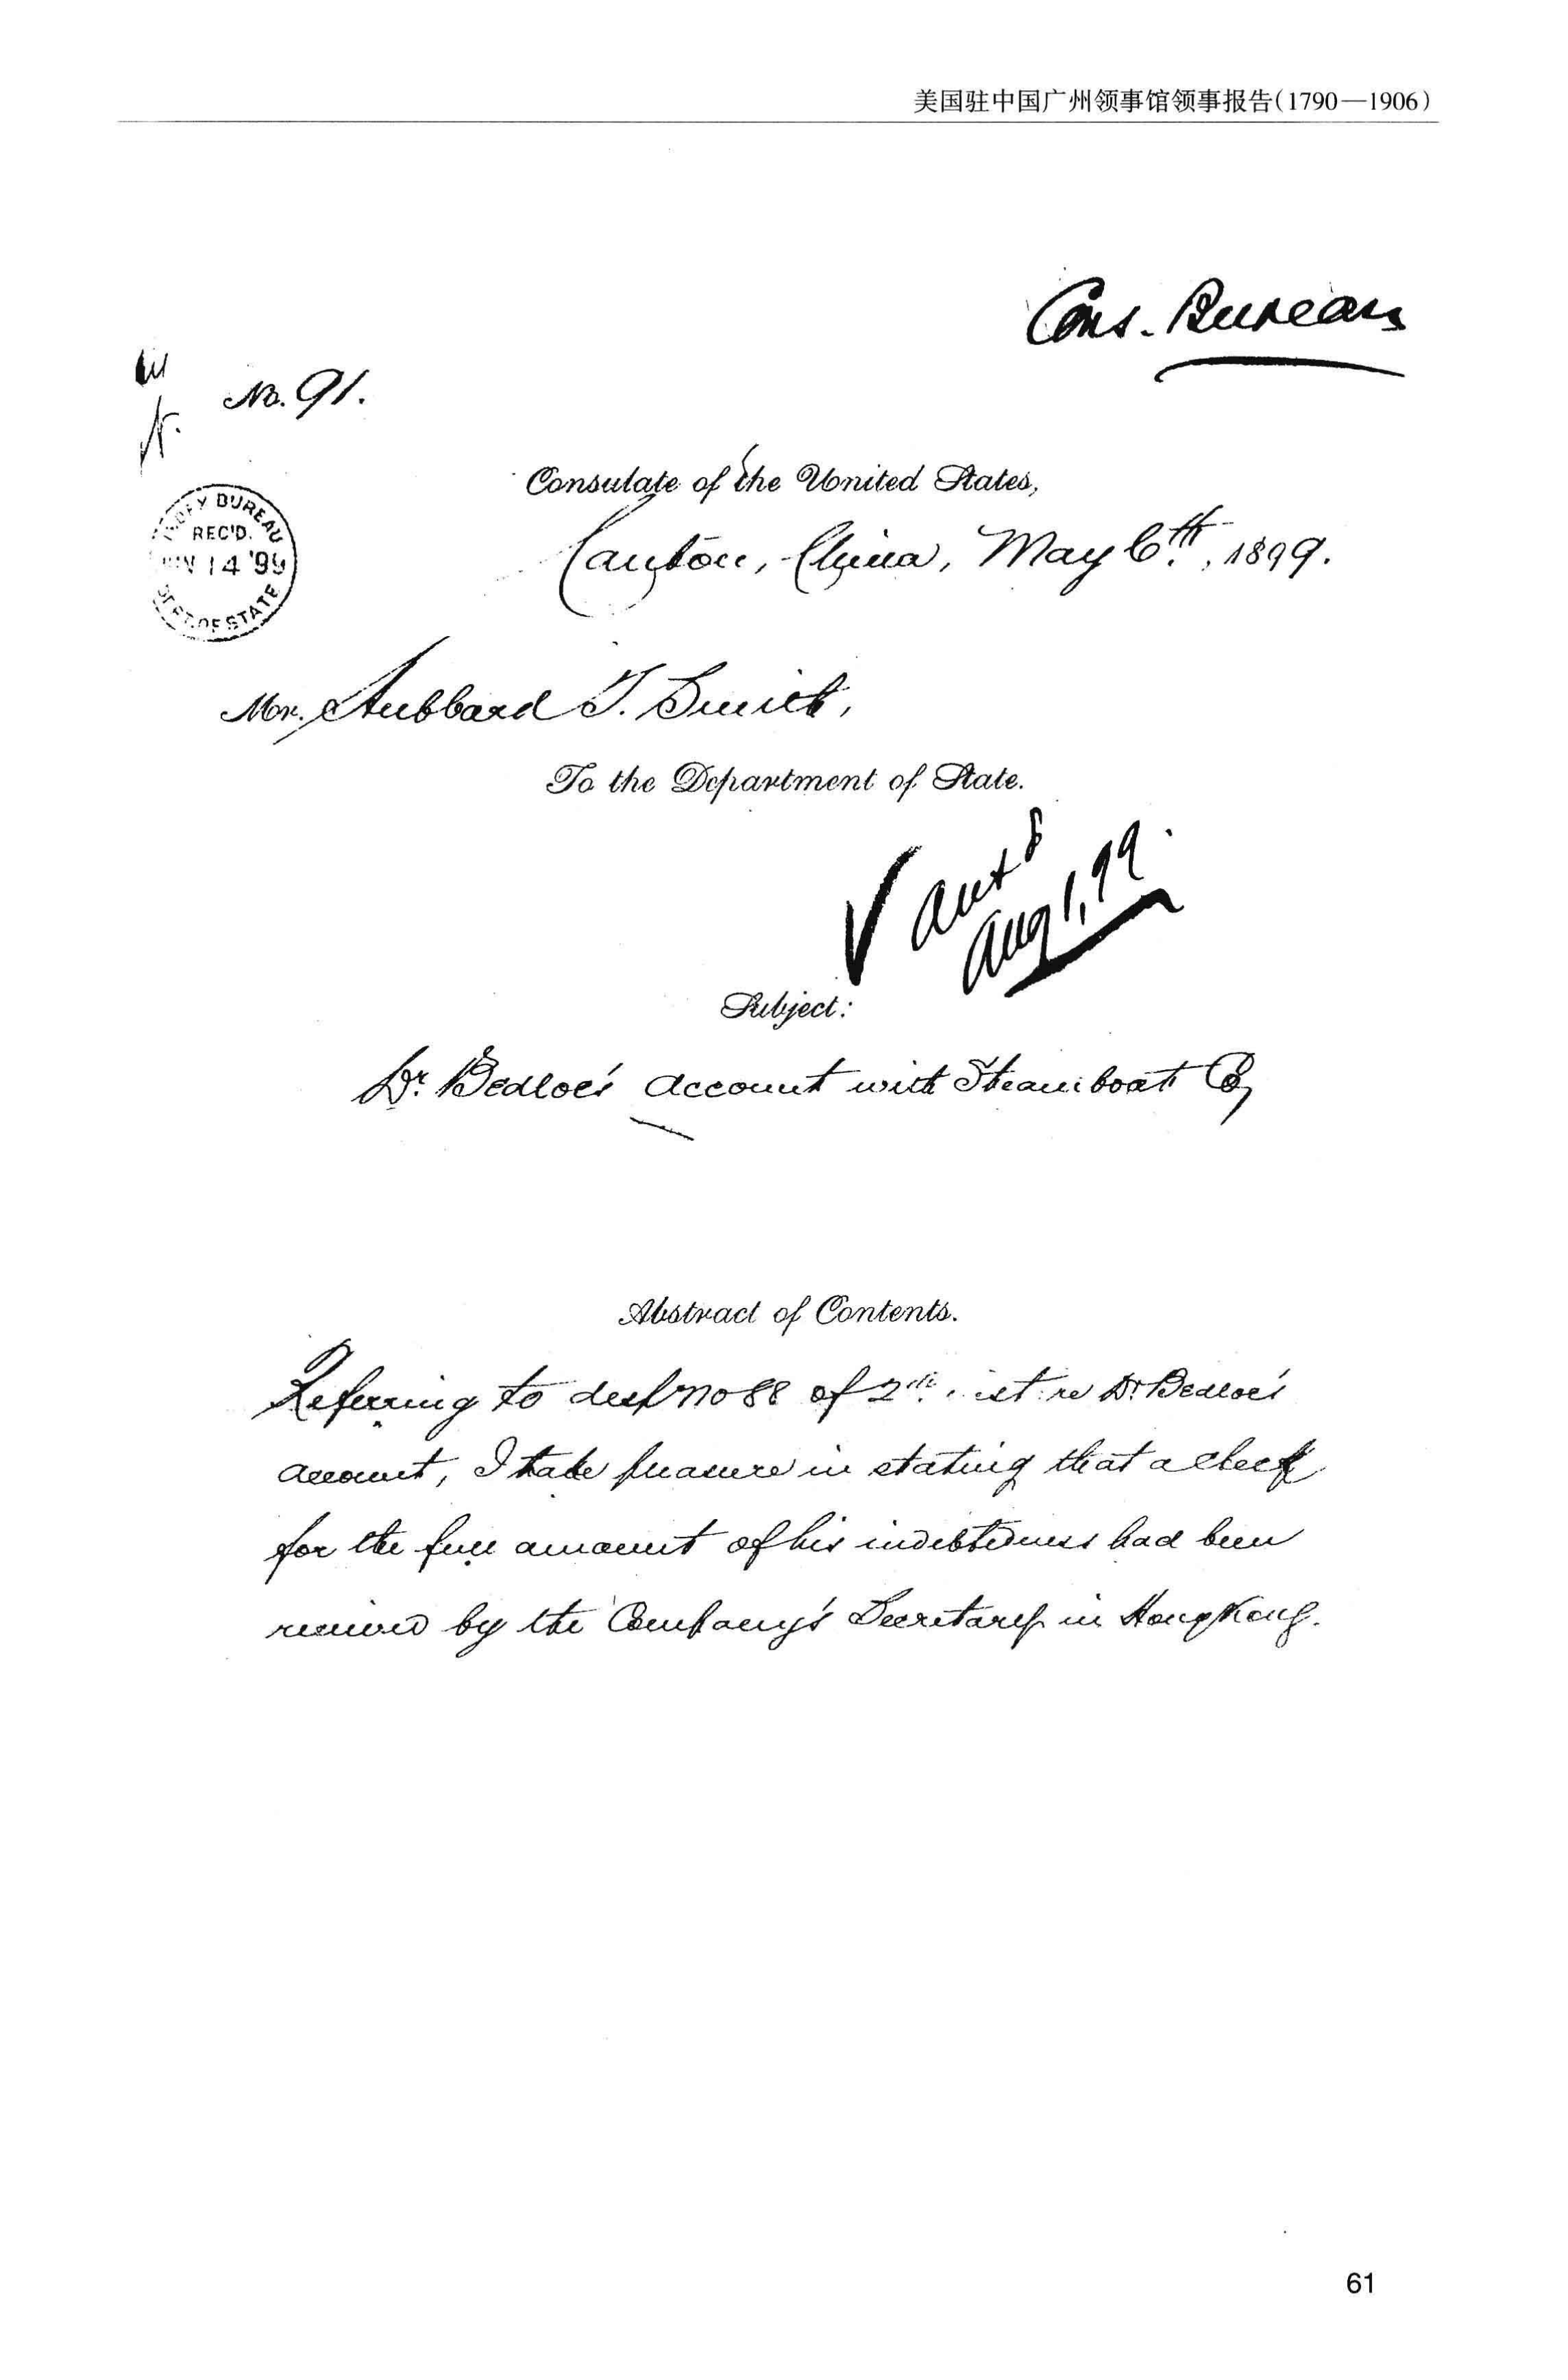 美国驻中国广州领事馆领事报告(1790—1906)
Cons. Bureau
No. 91.
Consulate of the United States,
Canton, China, May 6th, 1899.
BUREAU
REC'D.
14 '99
DEPT. OF STATE
Mr. Hubbard T. Smith,
To the Department of State.
Aug 1, 99.
Subject:
Dr. Bedloe's account with Steamboat Co
Abstract of Contents.
Referring to desp no 88 of 2nd inst. re Dr Bedloe's
account, I take pleasure in stating that a check
for the full amount of his indebtedness had been
received by the Company's Secretary in HongKong.
61